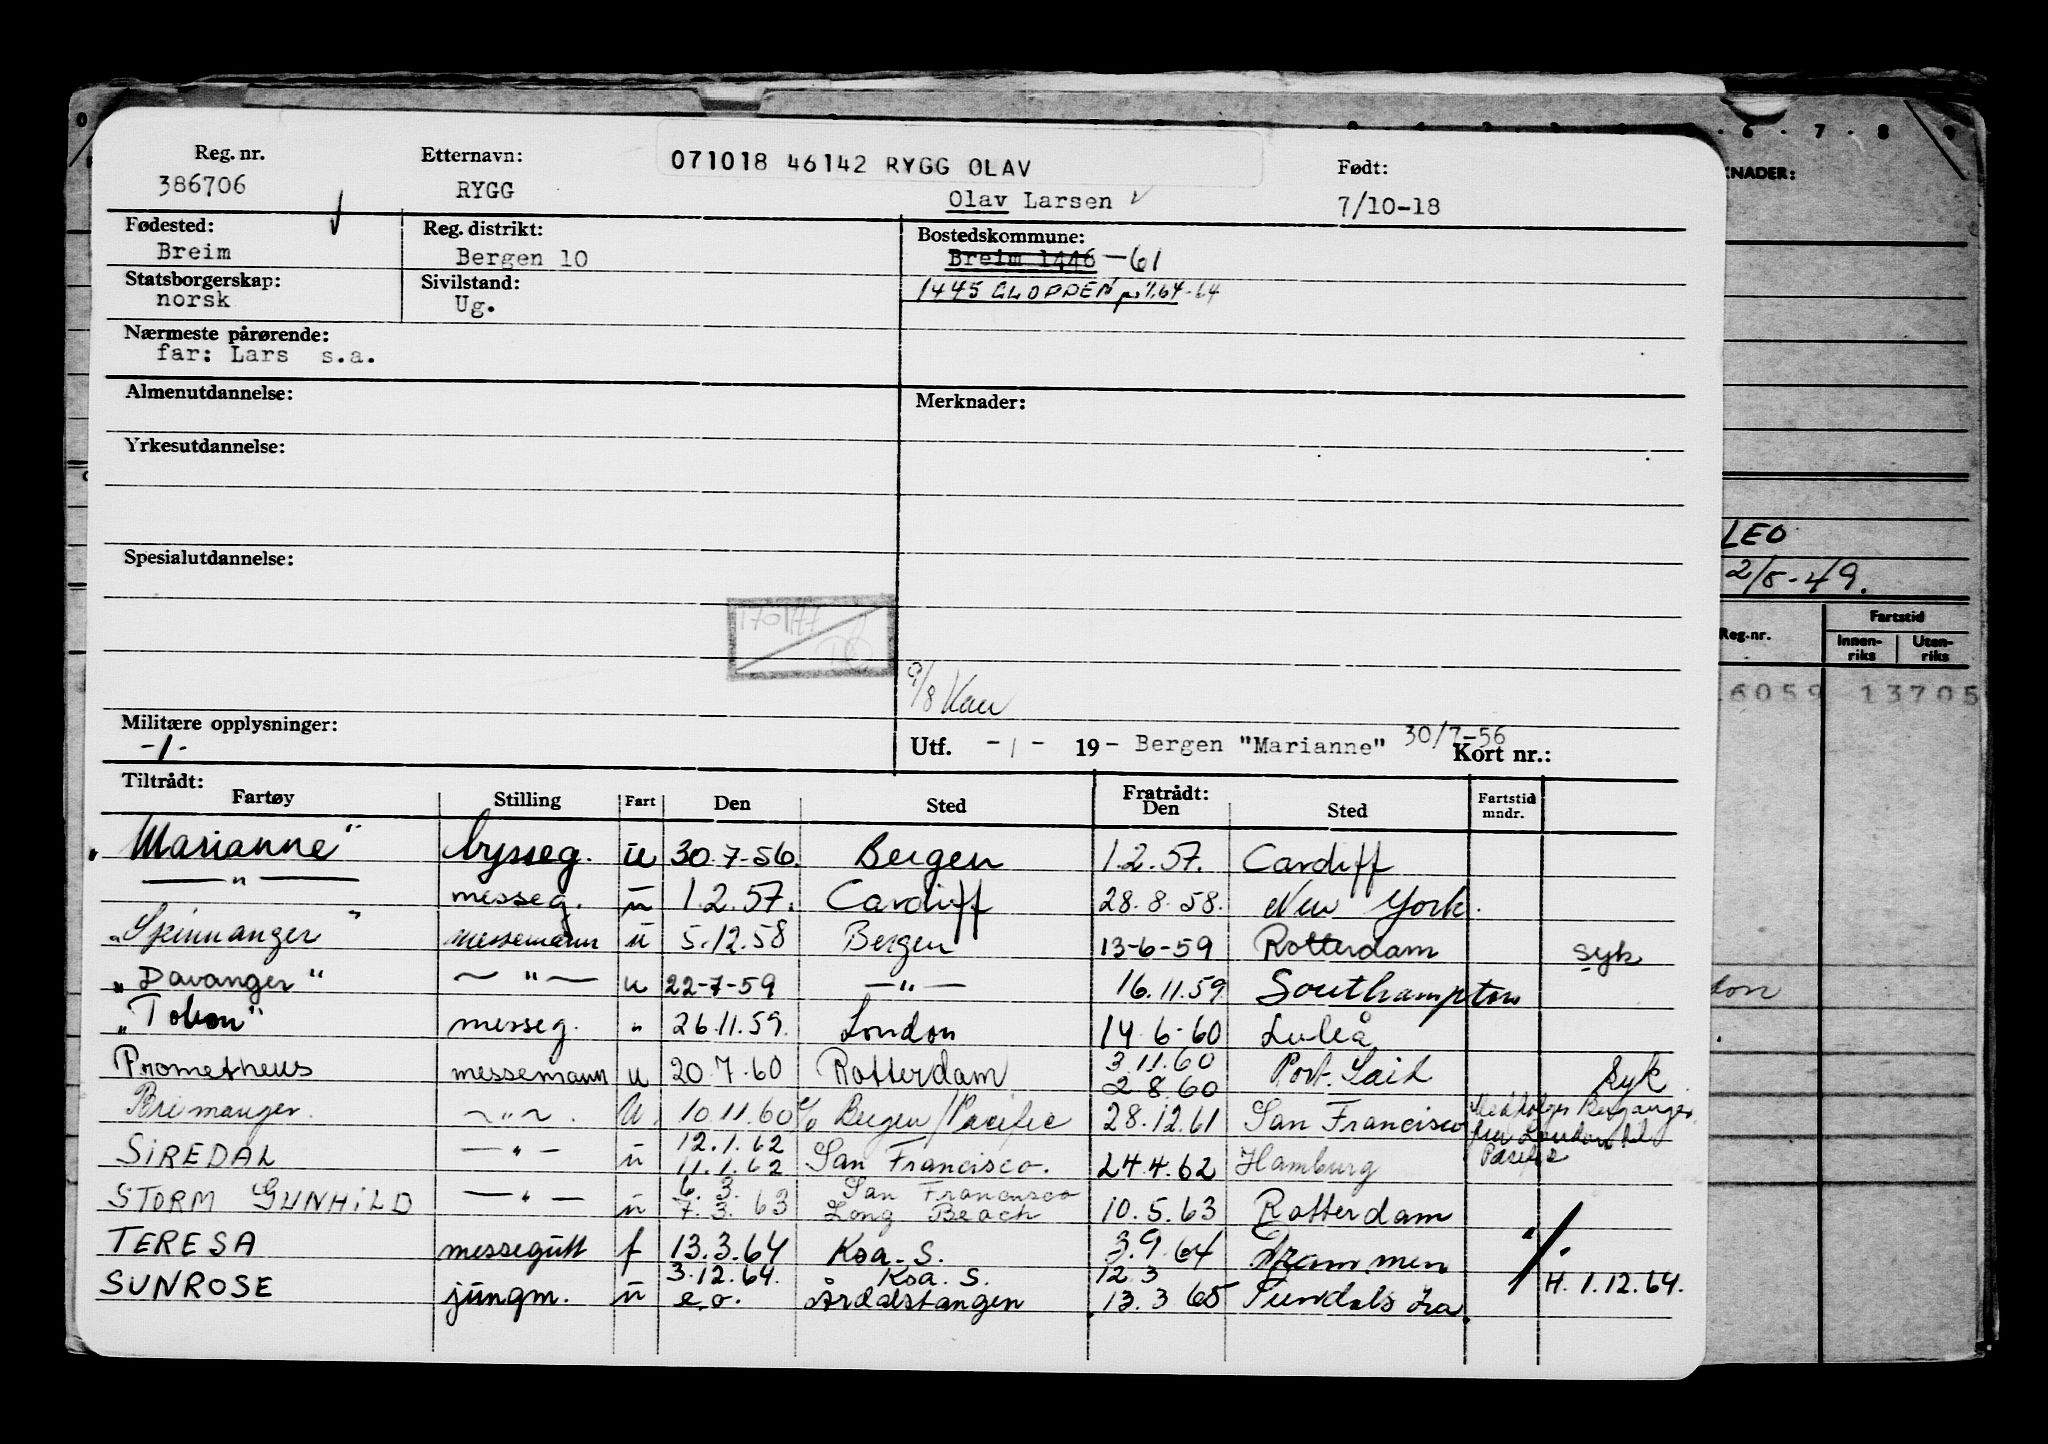 Reg. nr. Etternavn: 071018 46142 RYGG OLAV Født:
386706 RYGG Olav Larsen 7/10-18
Fødested: Reg. distrikt: Bostedskommune:
Breim Bergen 10 Breim 1446 -61
Statsborgerskap: Sivilstand: 1445 GLOPPEN pr 1/1.64-64
norsk Ug.
Nærmeste pårørende:
far: Lars s.a.
Almenutdannelse: Merknader:
Yrkesutdannelse:
Spesialutdannelse:
9/8
Militære opplysninger: Utf. -1- 19- Bergen "Marianne" 30/7-56 Kort nr.:
-1-
Tiltrådt: Fratrådt:
Fartøy Stilling Fart Den Sted Den Sted Fartstid mndr.
"Marianne" bysseg. u 30.7-56. Bergen 1.2.57. Cardiff
—"— messeg. u 1.2.57. Cardiff 28.8.58. New York.
"Spinnanger" messemann u 5.12.58 Bergen 13-6-59 Rotterdam syk
"Davanger" —"— u 22-7-59 —"— 16.11.59 Southampton
"Tolvon" messeg. " 26.11.59. London 14.6-60 Luleå
3.11.60
Prometheus messemann u 20.7.60 Rotterdam 2.8.60 Port. Said Syk
Bremanger. —"—. U. 10.11.60 Bergen/Pacific 28.12.61 San Francisco Medfølger Berganger fra London til Pacific
12.1.62
SIREDAL —"— u 11.1.62 San Francisco. 24.4.62 Hamburg
6.3. San Francisco
STORM GUNHILD —"— u 7.3.63 Long Beach 10.5.63 Rotterdam
TERESA messegutt f 13.3.64 Ksa. S. 3.9.64 Drammen
3.12.64. Ksa. S. 12.3
SUNROSE jungm. u e.o. Årdalstangen 13.3 65 H. 1.12.64.
KNADER:
LEO
2/8-49.
Reg-nr. Fartstid
Innen-riks Uten-riks
6059 13705